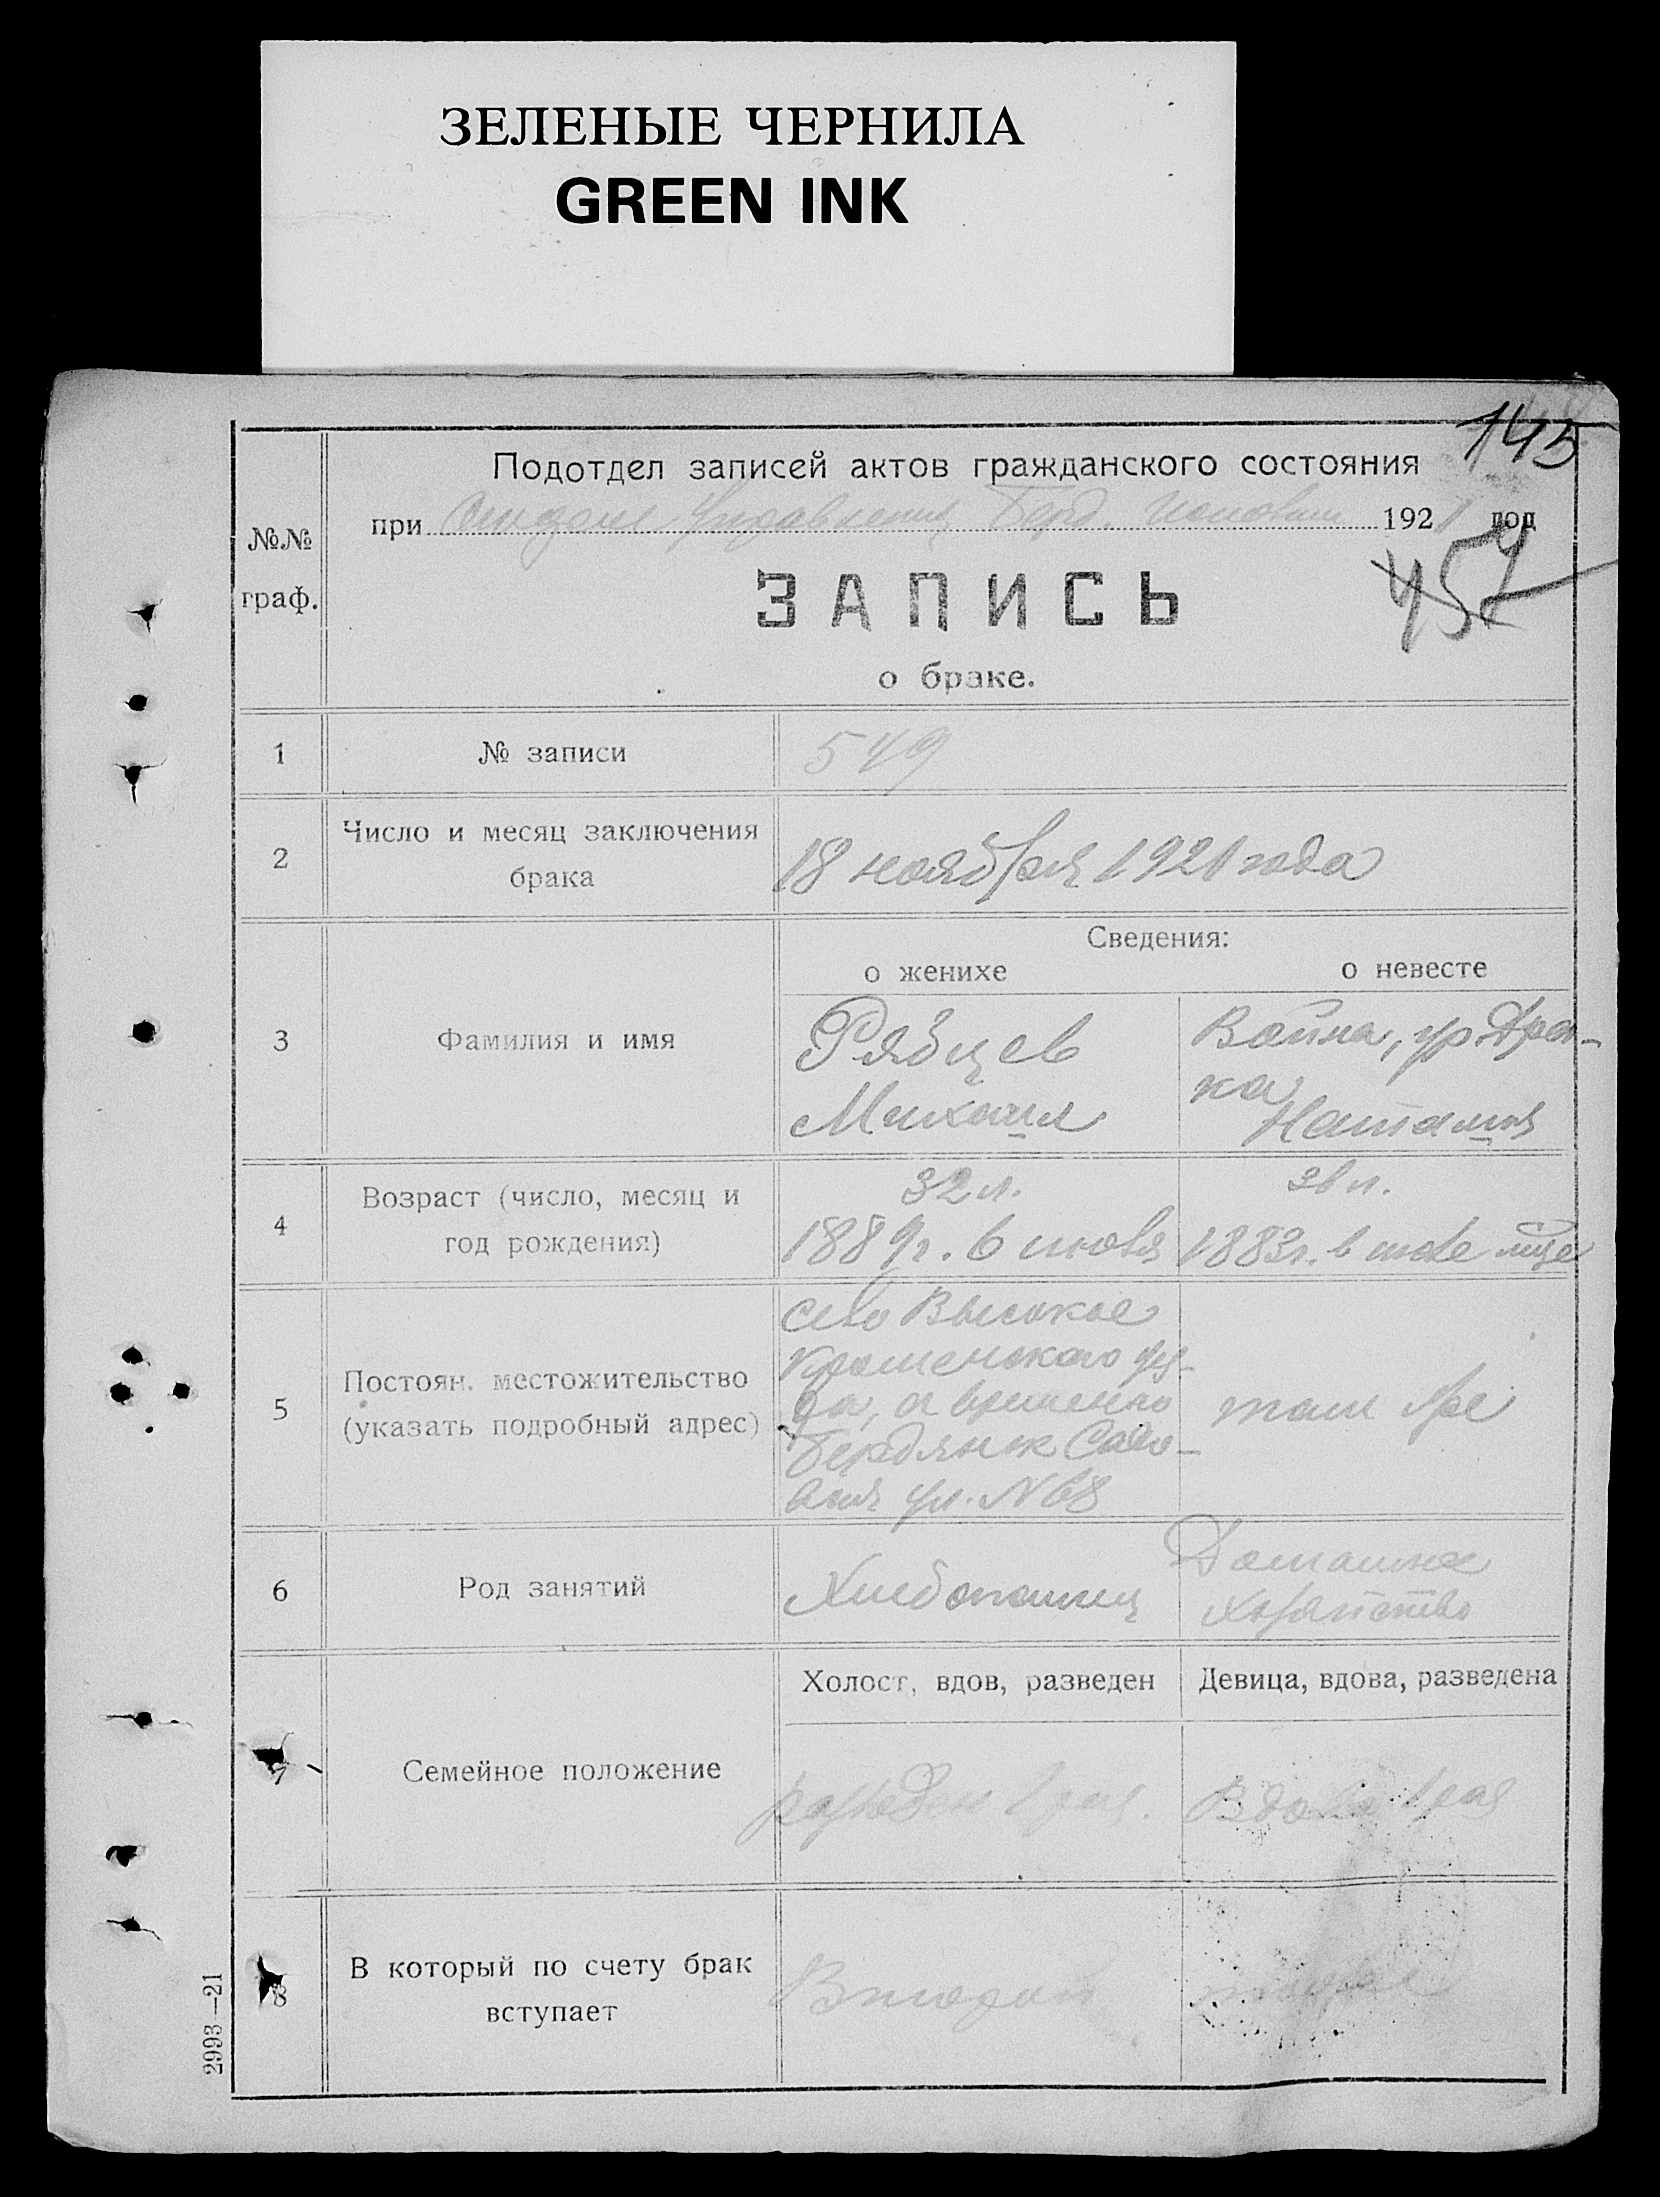 ЗЕЛЕНЫЕ ЧЕРНИЛА
GREEN INK
145
Подотдел записей актов гражданского состояния
при Отделе Управления Берд. 1921 год
№№
граф.
457
ЗАПИСЬ
о браке.
1 № записи 549
2 Число и месяц заключения
брака
18 ноября 1921 года
Сведения:
о женихе о невесте
3 Фамилия и имя
Рябцев
Михаил
Война, ур.
Наталия
4 Возраст (число, месяц и
год рождения)
32 л.
1889 г. 6 ноября
38 л.
1883 г. в
5 Постоян. местожительство
(указать подробный адрес)
село Высокое
уез-
да, а временно
Бердянск Садо-
вая ул. №68
там же
6 Род занятий
Хлебопашец
Домашнее
хозяйство
Холост, вдов, разведен Девица, вдова, разведена
7 Семейное положение
разведен 1 раз. Вдова 1 раз
8 В который по счету брак
вступает
Второй
2993—21